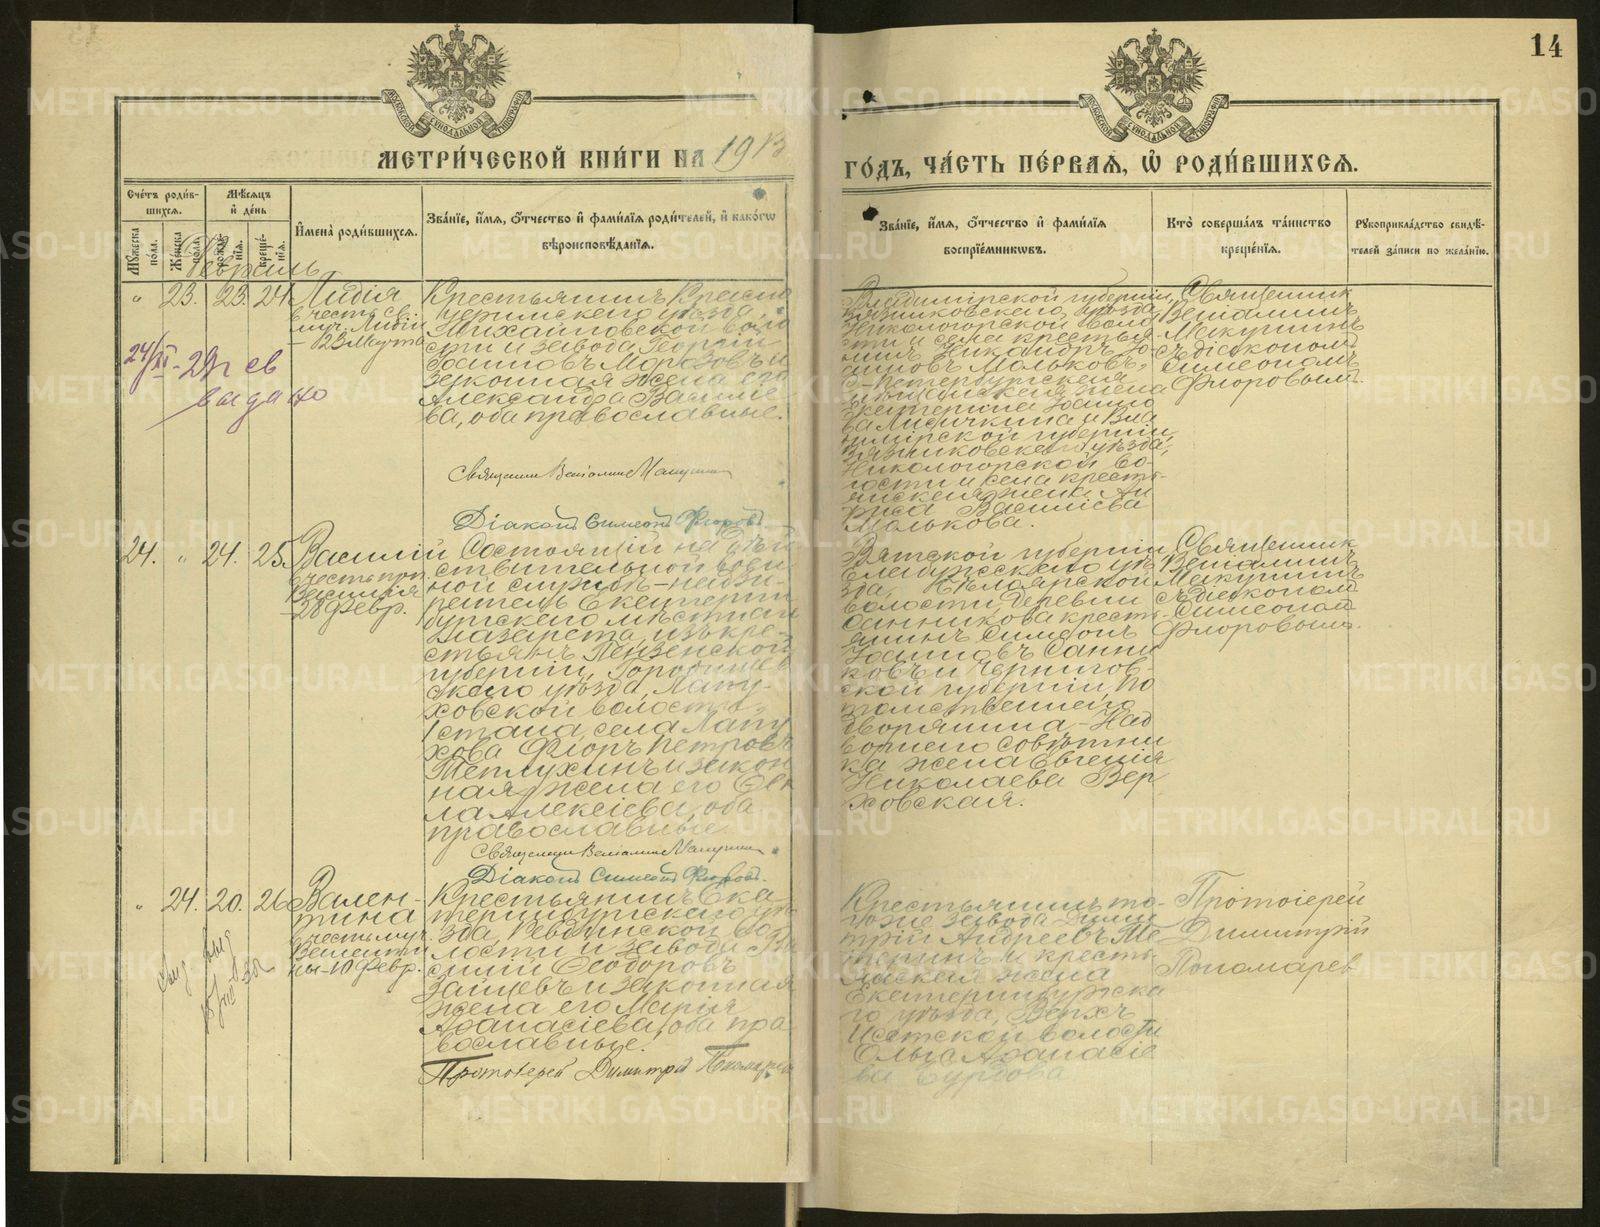 14
МЕТРИ́ЧЕСКОЙ КНИ́ГИ НА 1913
ГО́ДЪ, ЧА́СТЬ ПЕ́РВАЯ, Ѡ РОДИ́ВШИХСЯ.
Сче́тъ роди́в-
шихся.
Мѣ́сяцъ
и де́нь
Мꙋжеска
по́ла.
Же́нска
по́ла.
рожде́-
нїя.
креще́-
нїя.
Имена̀ роди́вшихся.
Зва́нїе, и́мя, ѻ́тчество и фами́лїя роди́телей, и како́гѡ
вѣроисповѣ́данїя.
Зва́нїе, и́мя, ѻ́тчество и фами́лїя
восприе́мникѡвъ.
Кто̀ соверша́лъ та́инство
креще́нїя.
Рꙋкоприкла́дство свидѣ́-
телей за́писи по жела́нїю.
Февраль
" 23. 23. 24.
Лидія
въ честь св.
муч. Лидіи
- 23 Марта
Крестьянинъ Красно
уфимскаго уѣзда,
Михайловской воло
сти и завода Георгій
Іоанновъ Морозовъ и
законная жена его
Александра Василіе
ва, оба православные.
Священникъ Веніаминъ Макушинъ
Діаконъ Симеонъ Флоровъ.
выдано
Владимірской губерніи,
Вязниковскаго уѣзда
Никологорской воло
сти и села крестья
нинъ Никандръ Іо
анновъ Мольковъ,
С-Петербургская
мѣщанская жена
Екатерина Іоанно
ва Лисичкина и Вла
димірской губерніи,
Вязниковскаго уѣзда,
Никологорской во
лости и села кресть-
янская жена Ла
риса Василіева
Молькова.
Священникъ
Веніаминъ
Макушинъ
съ діакономъ
Симеономъ
Флоровымъ.
24. " 24. 25.
Василій
въ честь преп.
Василія
- 28 Февр.
Состоящій на дѣй
ствительной воен
ной службѣ - надзи-
ратель Екатерин
бургскаго мѣстнаго
лазарета, изъ кре-
стьянъ Пензенской
губерніи, Городищен
скаго уѣзда, Лапу-
ховской волости,
1 стана, села Лапу
хова Флоръ Петровъ
Теплухинъ и закон
ная жена его Ѳек
ла Алексіева, оба
православные
Священникъ Веніаминъ Макушинъ
Діаконъ Симеонъ Флоровъ.
Вятской губерніи
Елабужскаго уѣ
зда,
волости, деревни
Санникова кресть-
янинъ Симеонъ
Іоанновъ Санни
ковъ и Чернигов-
ской губерніи, по
томственнаго
дворянина - Над
ворнаго совѣтни
ка жена Евгенія
Николаева Вер
ховская.
Священникъ
Веніаминъ
Макушинъ
съ діакономъ
Симеоном
Флоровымъ.
" 24. 20. 26
Вален-
тина
въ честь муч.
Валенти
ны - 10 Февр.
Крестьянинъ Ека
теринбургскаго уѣ
зда, Ревдинской во
лости и завода Ва
силій Ѳеодоровъ
Зайцевъ и законная
жена его Марія
Аѳанасіева, оба пра
вославные.
Протоіерей Димитрій Пономаревъ
Крестьянинъ то-
гоже завода Дими
трій Андреевъ Ме
теринъ и кресть-
янская жена
Екатеринбургска
го уѣзда, Верхъ
Исетской волости
Ольга Аѳанасіе
ва Бурцова
Протоіерей
Димитрій
Пономарев